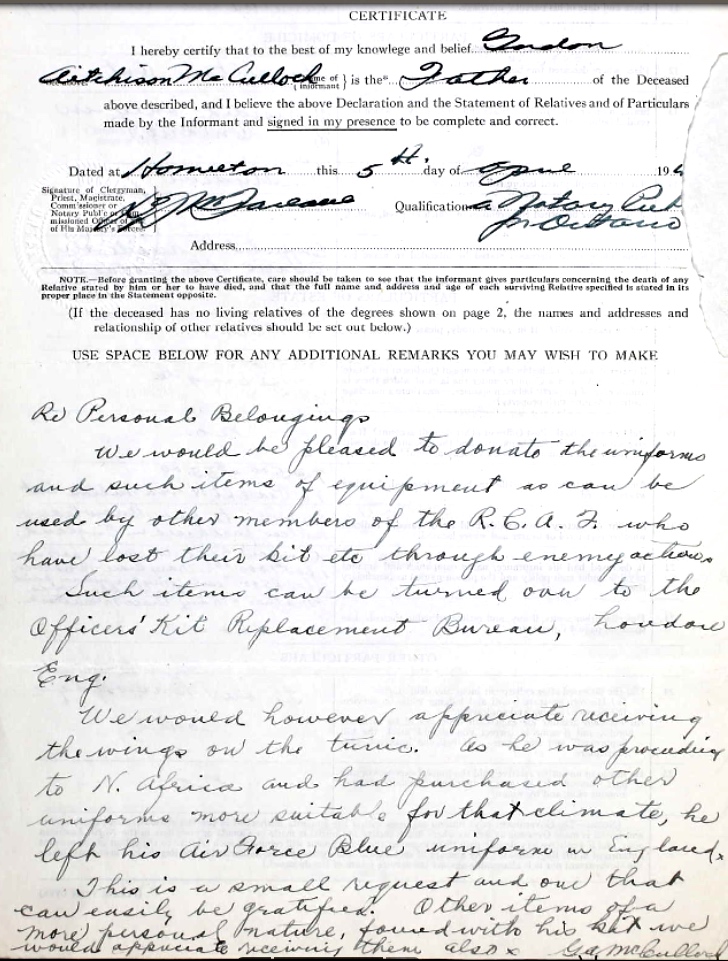 CERTIFICATE
I hereby certify that to the best of my knowlege and belief Gordon
Aitchison McCulloch {name of informant} is the* Father of the Deceased
above described, and I believe the above Declaration and the Statement of Relatives and of Particulars
made by the Informant and signed in my presence to be complete and correct.
Dated at Hamilton this 5th. day of April 194
Signature of Clergyman,
Priest, Magistrate,
Commissioner or
Notary Public or Com-
missioned Officer of
of His Majesty's Forces.
Qualification a Notary Pub
in Ontario
Address
NOTE.—Before granting the above Certificate, care should be taken to see that the informant gives particulars concerning the death of any
Relative stated by him or her to have died, and that the full name and address and age of each surviving Relative specified is stated in its
proper place in the Statement opposite.
(If the deceased has no living relatives of the degrees shown on page 2, the names and addresses and
relationship of other relatives should be set out below.)
USE SPACE BELOW FOR ANY ADDITIONAL REMARKS YOU MAY WISH TO MAKE
Re Personal Belongings
We would be pleased to donate the uniforms
and such items of equipment as can be
used by other members of the R.C.A.F. who
have lost their kit etc through enemy action.
Such items can be turned over to the
Officers' Kit Replacement Bureau, London
Eng.
We would however appreciate receiving
the wings on the tunic. As he was proceeding
to N. Africa and had purchased other
uniforms more suitable for that climate, he
left his Air Force Blue uniform in England.
This is a small request and one that
can easily be gratified. Other items of a
more personal nature, found with his kit we
would appreciate receiving them also. G.A. McCulloch